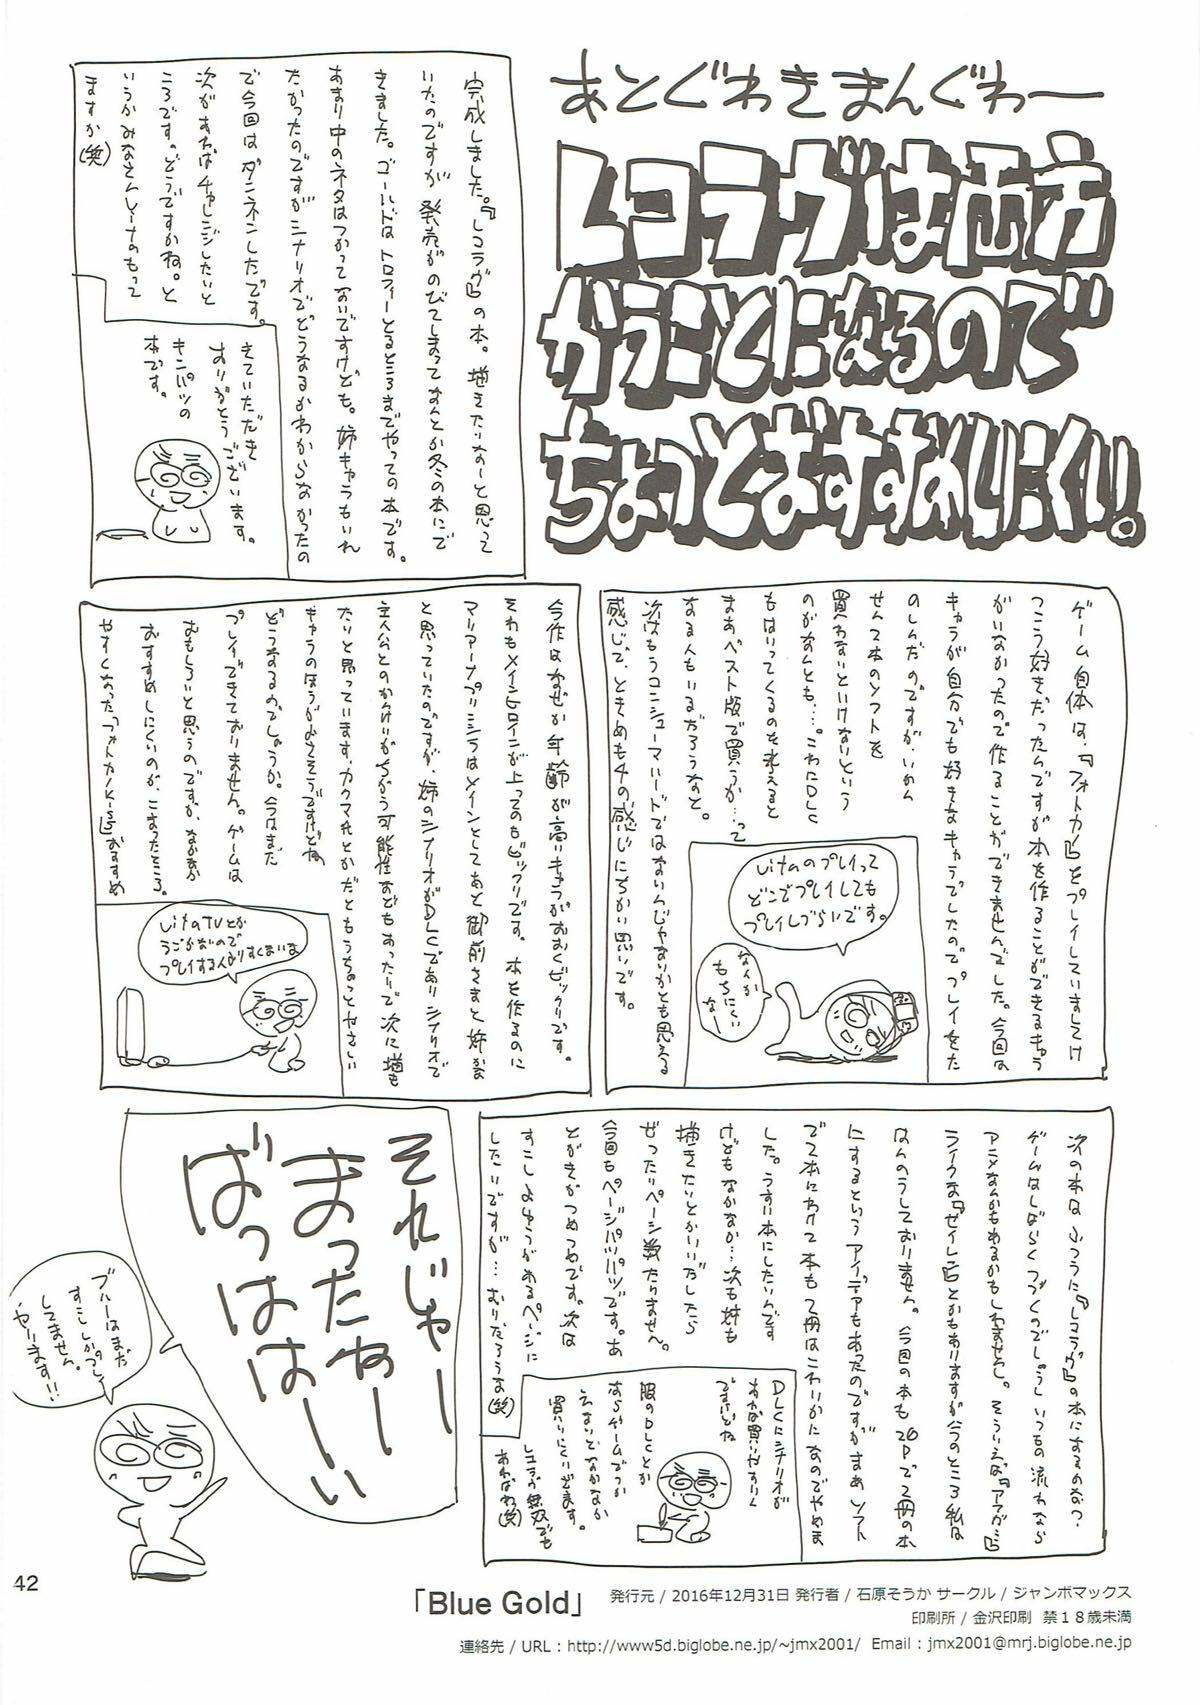 あとぐわきまんぐわー
レコラヴは両方
かうことになるので
ちょっとおすすめしにくい!。
完成しました。『レコラヴ』の本。描きたいなーと思って
いたのですが発売がのびてしまってなんとか冬の本にで
きました。ゴールドはトロフィーとるところまでやっての本です。
あまり中のネタはつかってないですけども。姉キャラもいれ
たかったのですがシナリオでどうなるかわからなかったの
で今回はダンネンしたです。
次があればチャレンジしたいと
ころです。どうですかね。と
いうかみなさんレーナのもって
ますか(笑)
きていただき
ありがとうございます。
キンパツの
本です。
ゲーム自体は、『フォトカノ』をプレイしていましてけ
っこう好きだったんですが本を作ることができるキャラ
がいなかったので作ることができませんでした。今回は
キャラが自分でも好きなキャラでしたのでプレイをた
のしんだのですが、いかん
せん2本のソフトを
買わないといけないという
のがなんとも…。これにDLC
もはいってくるのを考えると
まあベスト版で買うか…って
なる人もいるだろうなと。
次はもうコンシューマハードではないんじゃないかとも思える
感じで、ときめも4の感じにちかい思いです。
Vitaのプレイって
どこでプレイしても
プレイしづらいです。
なんか
もちにくい
なー
今作はなぜか年齢が高いキャラがおおくビックリです。
それもメインヒロインが上ってのもビックリです。本を作るのに
マリアーナプリシラはメインとしてあと御前さまと姉かな
と思っていたのですが、姉のシナリオがDLCでありシナリオで
主人公とのかんけいがちがう可能性などもあったりで次に描も
たいと思っています。カクマれとかだともうちょっとやさしい
キャラのほうがよさそうですけどね
どうなるのでしょうか。今はまだ
プレイできておりません。ゲームは
おもしろいと思うのですが、なかなか
おすすめしにくいのが、こまったところ。
やすくなった「フォトカノKiss」おすすめ
VitaTVとか
うごかないので
プレイする人よりすくないよ
次の本はふつうに『レコラヴ』の本になるのかな?
ゲームはしばらくつづくのでしょうし、いつもの流れなら
アニメなんかもあるかもしれませんし。そういえば『アマガミ』
ライクな『セイレン』とかもありますが今のところ私は
はんのうしておりません。今回の本も20Pで2冊の本
にするというアイデアもあったのですがまあソフト
で2本にわけて本も2冊はこれいかになのでやめま
した。うすい本にしたいんです
けどもなかなか…次も姉も
描きたいとかいいだしたら
ぜったいページ数たりません。
今回もページパツパツです。あ
とがきがつめつめです。次は
すこしよゆうがあるページに
したいですが…むりだろうな(笑)
DLCにシナリオが
あれば買いやすいん
ですけどね
服のDLCとか
ならゲームでつか
えないとなかなか
買いにくいどます。
レコラヴ無双でも
あればね(笑)
それじゃー
まったねー
ばっははーい
ブルーはまだ
すこししかプレイ
してません。
やります!!
42
「Blue Gold」
発行元 / 2016年12月31日 発行者 / 石原そうか サークル / ジャンボマックス
印刷所 / 金沢印刷 禁18歳未満
連絡先 / URL : http://www5d.biglobe.ne.jp/~jmx2001/ Email : jmx2001@mrj.biglobe.ne.jp